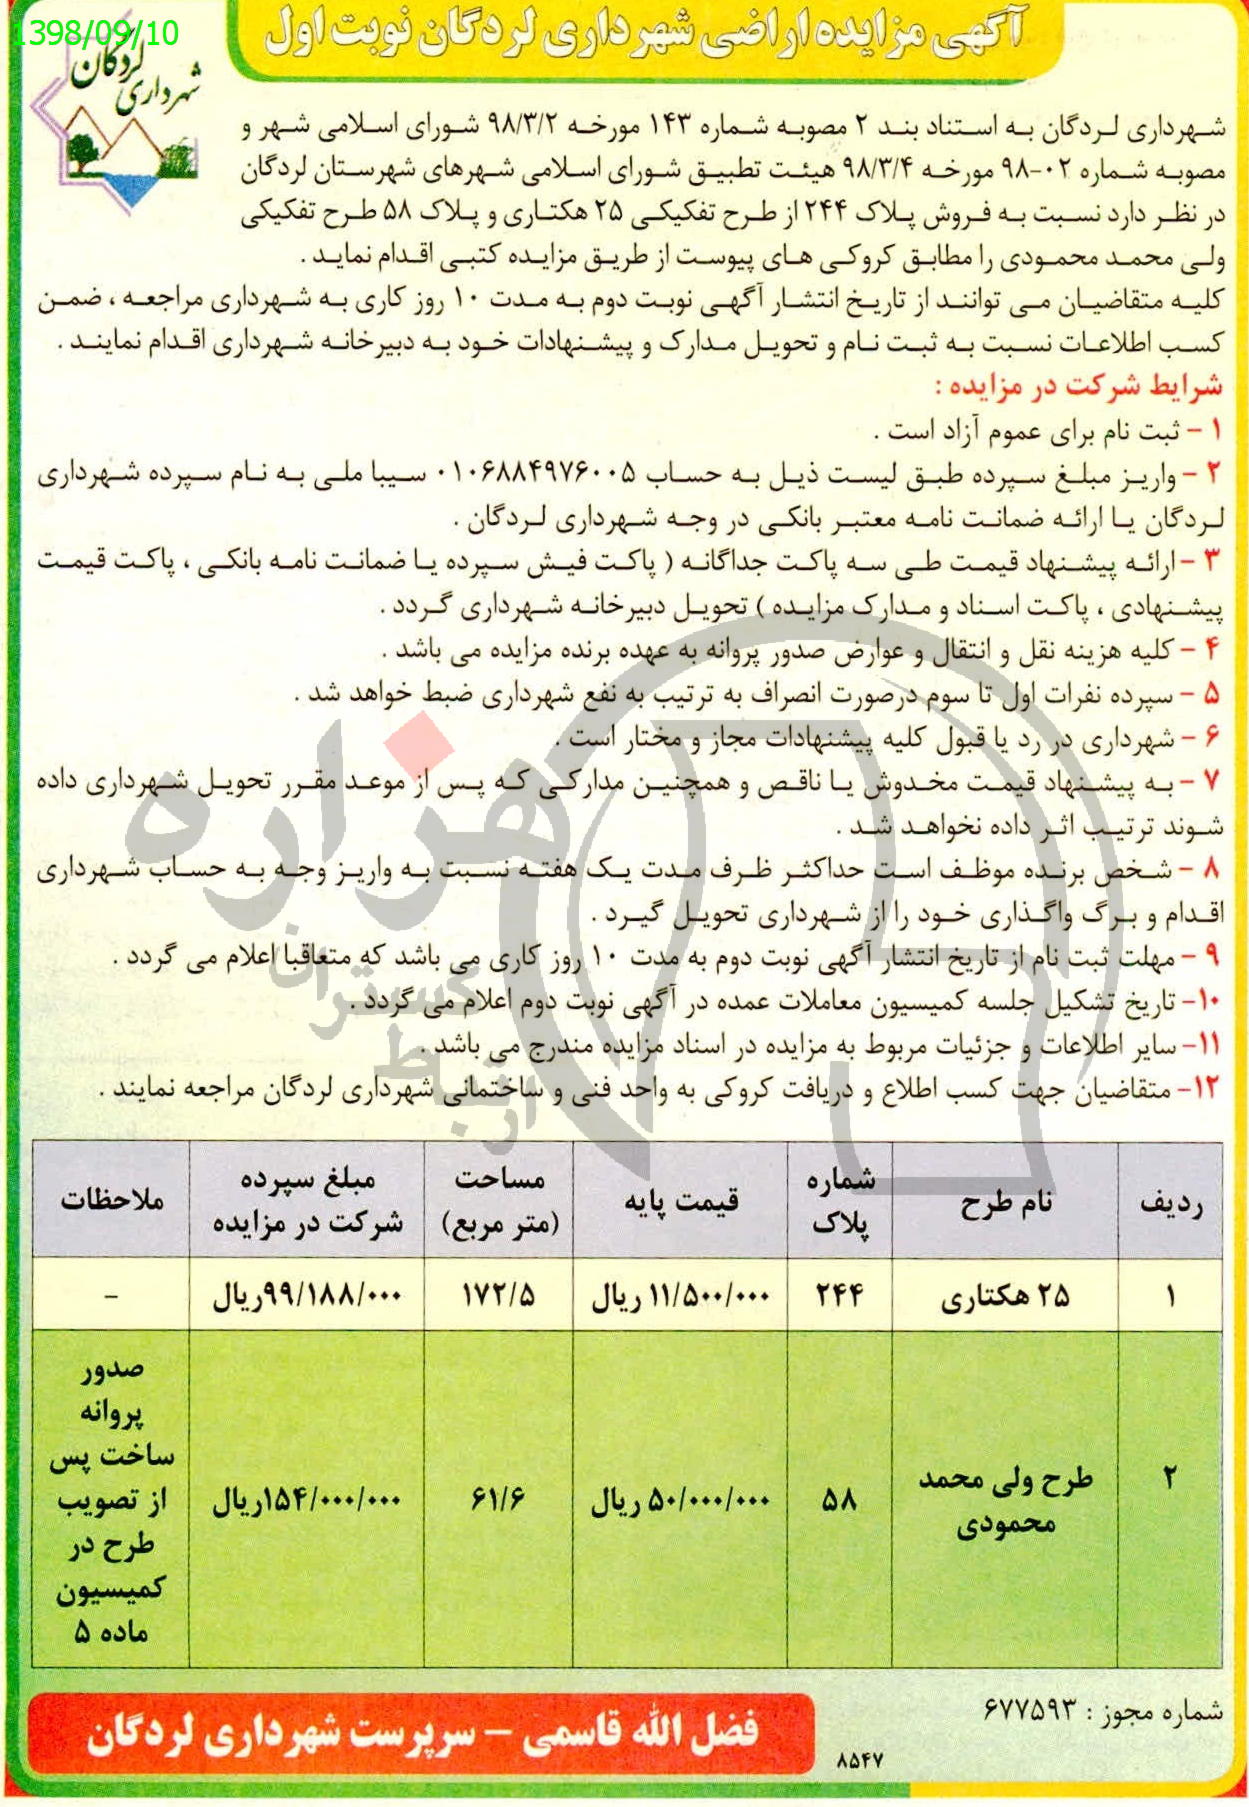 1398/09/10
آگهی مزایده اراضی شهرداری لردگان نوبت اول
شهرداری لردگان
شهرداری لردگان به استناد بند ۲ مصوبه شماره ۱۴۳ مورخه ۹۸/۳/۲ شورای اسلامی شهر و
مصوبه شماره ۰۲-۹۸ مورخه ۹۸/۳/۴ هیئت تطبیق شورای اسلامی شهرهای شهرستان لردگان
در نظر دارد نسبت به فروش پلاک ۲۴۴ از طرح تفکیکی ۲۵ هکتاری و پلاک ۵۸ طرح تفکیکی
ولی محمد محمودی را مطابق کروکی های پیوست از طریق مزایده کتبی اقدام نماید .
کلیه متقاضیان می توانند از تاریخ انتشار آگهی نوبت دوم به مدت ۱۰ روز کاری به شهرداری مراجعه ، ضمن
کسب اطلاعات نسبت به ثبت نام و تحویل مدارک و پیشنهادات خود به دبیرخانه شهرداری اقدام نمایند .
شرایط شرکت در مزایده :
۱ - ثبت نام برای عموم آزاد است .
۲ - واریز مبلغ سپرده طبق لیست ذیل به حساب ۰۱۰۶۸۸۴۹۷۶۰۰۵ سیبا ملی به نام سپرده شهرداری
لردگان یا ارائه ضمانت نامه معتبر بانکی در وجه شهرداری لردگان .
۳ - ارائه پیشنهاد قیمت طی سه پاکت جداگانه ( پاکت فیش سپرده یا ضمانت نامه بانکی ، پاکت قیمت
پیشنهادی ، پاکت اسناد و مدارک مزایده ) تحویل دبیرخانه شهرداری گردد .
۴ - کلیه هزینه نقل و انتقال و عوارض صدور پروانه به عهده برنده مزایده می باشد .
۵ - سپرده نفرات اول تا سوم درصورت انصراف به ترتیب به نفع شهرداری ضبط خواهد شد .
۶ - شهرداری در رد یا قبول کلیه پیشنهادات مجاز و مختار است .
۷ - به پیشنهاد قیمت مخدوش یا ناقص و همچنین مدارکی که پس از موعد مقرر تحویل شهرداری داده
شوند ترتیب اثر داده نخواهد شد .
۸ - شخص برنده موظف است حداکثر ظرف مدت یک هفته نسبت به واریز وجه به حساب شهرداری
اقدام و برگ واگذاری خود را از شهرداری تحویل گیرد .
۹ - مهلت ثبت نام از تاریخ انتشار آگهی نوبت دوم به مدت ۱۰ روز کاری می باشد که متعاقبا اعلام می گردد .
۱۰- تاریخ تشکیل جلسه کمیسیون معاملات عمده در آگهی نوبت دوم اعلام می گردد .
۱۱- سایر اطلاعات و جزئیات مربوط به مزایده در اسناد مزایده مندرج می باشد .
۱۲- متقاضیان جهت کسب اطلاع و دریافت کروکی به واحد فنی و ساختمانی شهرداری لردگان مراجعه نمایند .
هزاره
ردیف | نام طرح | شماره پلاک | قیمت پایه | مساحت (متر مربع) | مبلغ سپرده شرکت در مزایده | ملاحظات
۱ | ۲۵ هکتاری | ۲۴۴ | ۱۱/۵۰۰/۰۰۰ ریال | ۱۷۲/۵ | ۹۹/۱۸۸/۰۰۰ریال | -
۲ | طرح ولی محمد محمودی | ۵۸ | ۵۰/۰۰۰/۰۰۰ ریال | ۶۱/۶ | ۱۵۴/۰۰۰/۰۰۰ریال | صدور پروانه ساخت پس از تصویب طرح در کمیسیون ماده ۵
شماره مجوز : ۶۷۷۵۹۳
فضل الله قاسمی – سرپرست شهرداری لردگان
۸۵۴۷